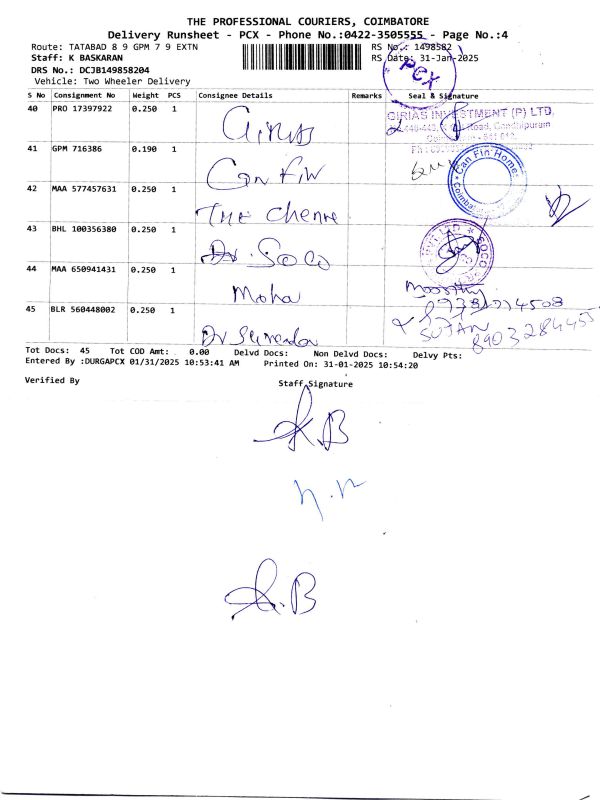 THE PROFESSIONAL COURIERS, COIMBATORE
Delivery Runsheet - PCX - Phone No.:0422-3505555 - Page No.:4
Route: TATABAD 8 9 GPM 7 9 EXTN RS No.: 1498582
Staff: K BASKARAN RS Date: 31-Jan-2025
PCX
DRS No.: DCJB149858204
Vehicle: Two Wheeler Delivery
S No Consignment No Weight PCS Consignee Details Remarks Seal & Signature
40 PRO 17397922 0.250 1 GIRIAS
GIRIAS INVESTMENT (P) LTD,
Road, Gandhipuram
41 GPM 716386 0.190 1 Can Fin
Can Fin Homes
Coimbatore
42 MAA 577457631 0.250 1 THE Chenne
43 BHL 100356380 0.250 1 Dr. SOCO
44 MAA 650941431 0.250 1 Moha
Moorthy
45 BLR 560448002 0.250 1
SUJAN
Tot Docs: 45 Tot COD Amt: 0.00 Delvd Docs: Non Delvd Docs: Delvy Pts:
Entered By :DURGAPCX 01/31/2025 10:53:41 AM Printed On: 31-01-2025 10:54:20
Verified By Staff Signature
K.B
K.B